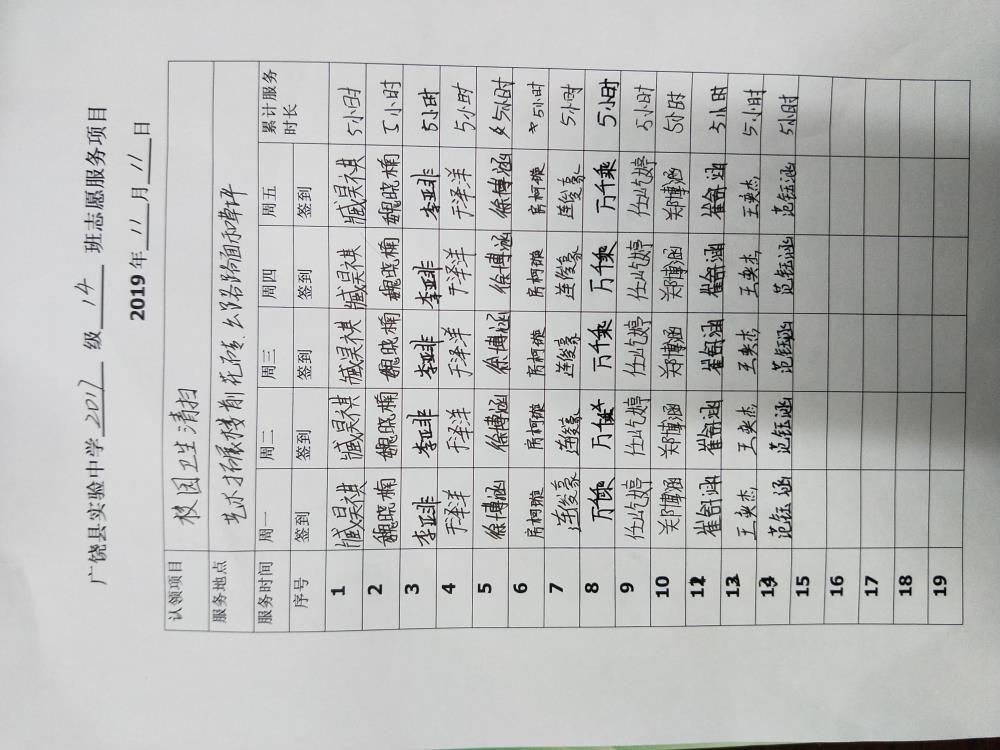 广饶县实验中学 2017 级 14 班志愿服务项目
2019 年 11 月 11 日
认领项目 校园卫生清扫
服务地点 艺术拓展楼前花砖、公路路面和草坪
服务时间 周一 周二 周三 周四 周五 累计服务时长
序号 签到 签到 签到 签到 签到
1 臧昊祺 臧昊祺 臧昊祺 臧昊祺 臧昊祺 5小时
2 魏晓楠 魏晓楠 魏晓楠 魏晓楠 魏晓楠 5小时
3 李亚非 李亚非 李亚非 李亚非 李亚非 5小时
4 于泽洋 于泽洋 于泽洋 于泽洋 于泽洋 5小时
5 徐博涵 徐博涵 徐博涵 徐博涵 徐博涵 5小时
6 房柯璇 房柯璇 房柯璇 房柯璇 房柯璇 5小时
7 连俊豪 连俊豪 连俊豪 连俊豪 连俊豪 5小时
8 万千乘 万千乘 万千乘 万千乘 万千乘 5小时
9 任屿婷 任屿婷 任屿婷 任屿婷 任屿婷 5小时
10 郑博涵 郑博涵 郑博涵 郑博涵 郑博涵 5小时
11 崔舒涵 崔舒涵 崔舒涵 崔舒涵 崔舒涵 5小时
13 王奕杰 王奕杰 王奕杰 王奕杰 王奕杰 5小时
14 范钰涵 范钰涵 范钰涵 范钰涵 范钰涵 5小时
15
16
17
18
19